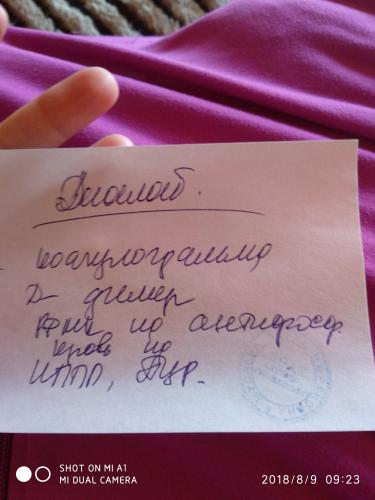 Диалаб.
коагулограмма
Д-димер
кровь на антифосф.
кровь на
ИППП, ПЦР.
SHOT ON MI A1
MI DUAL CAMERA
2018/8/9 09:23